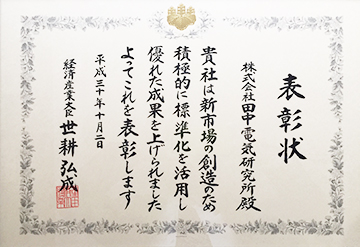 表彰状
株式会社田中電気研究所殿
貴社は新市場の創造のため
積極的に標準化を活用し
優れた成果を上げられました
よってこれを表彰します
平成三十年十月二日
経済産業大臣 世耕弘成